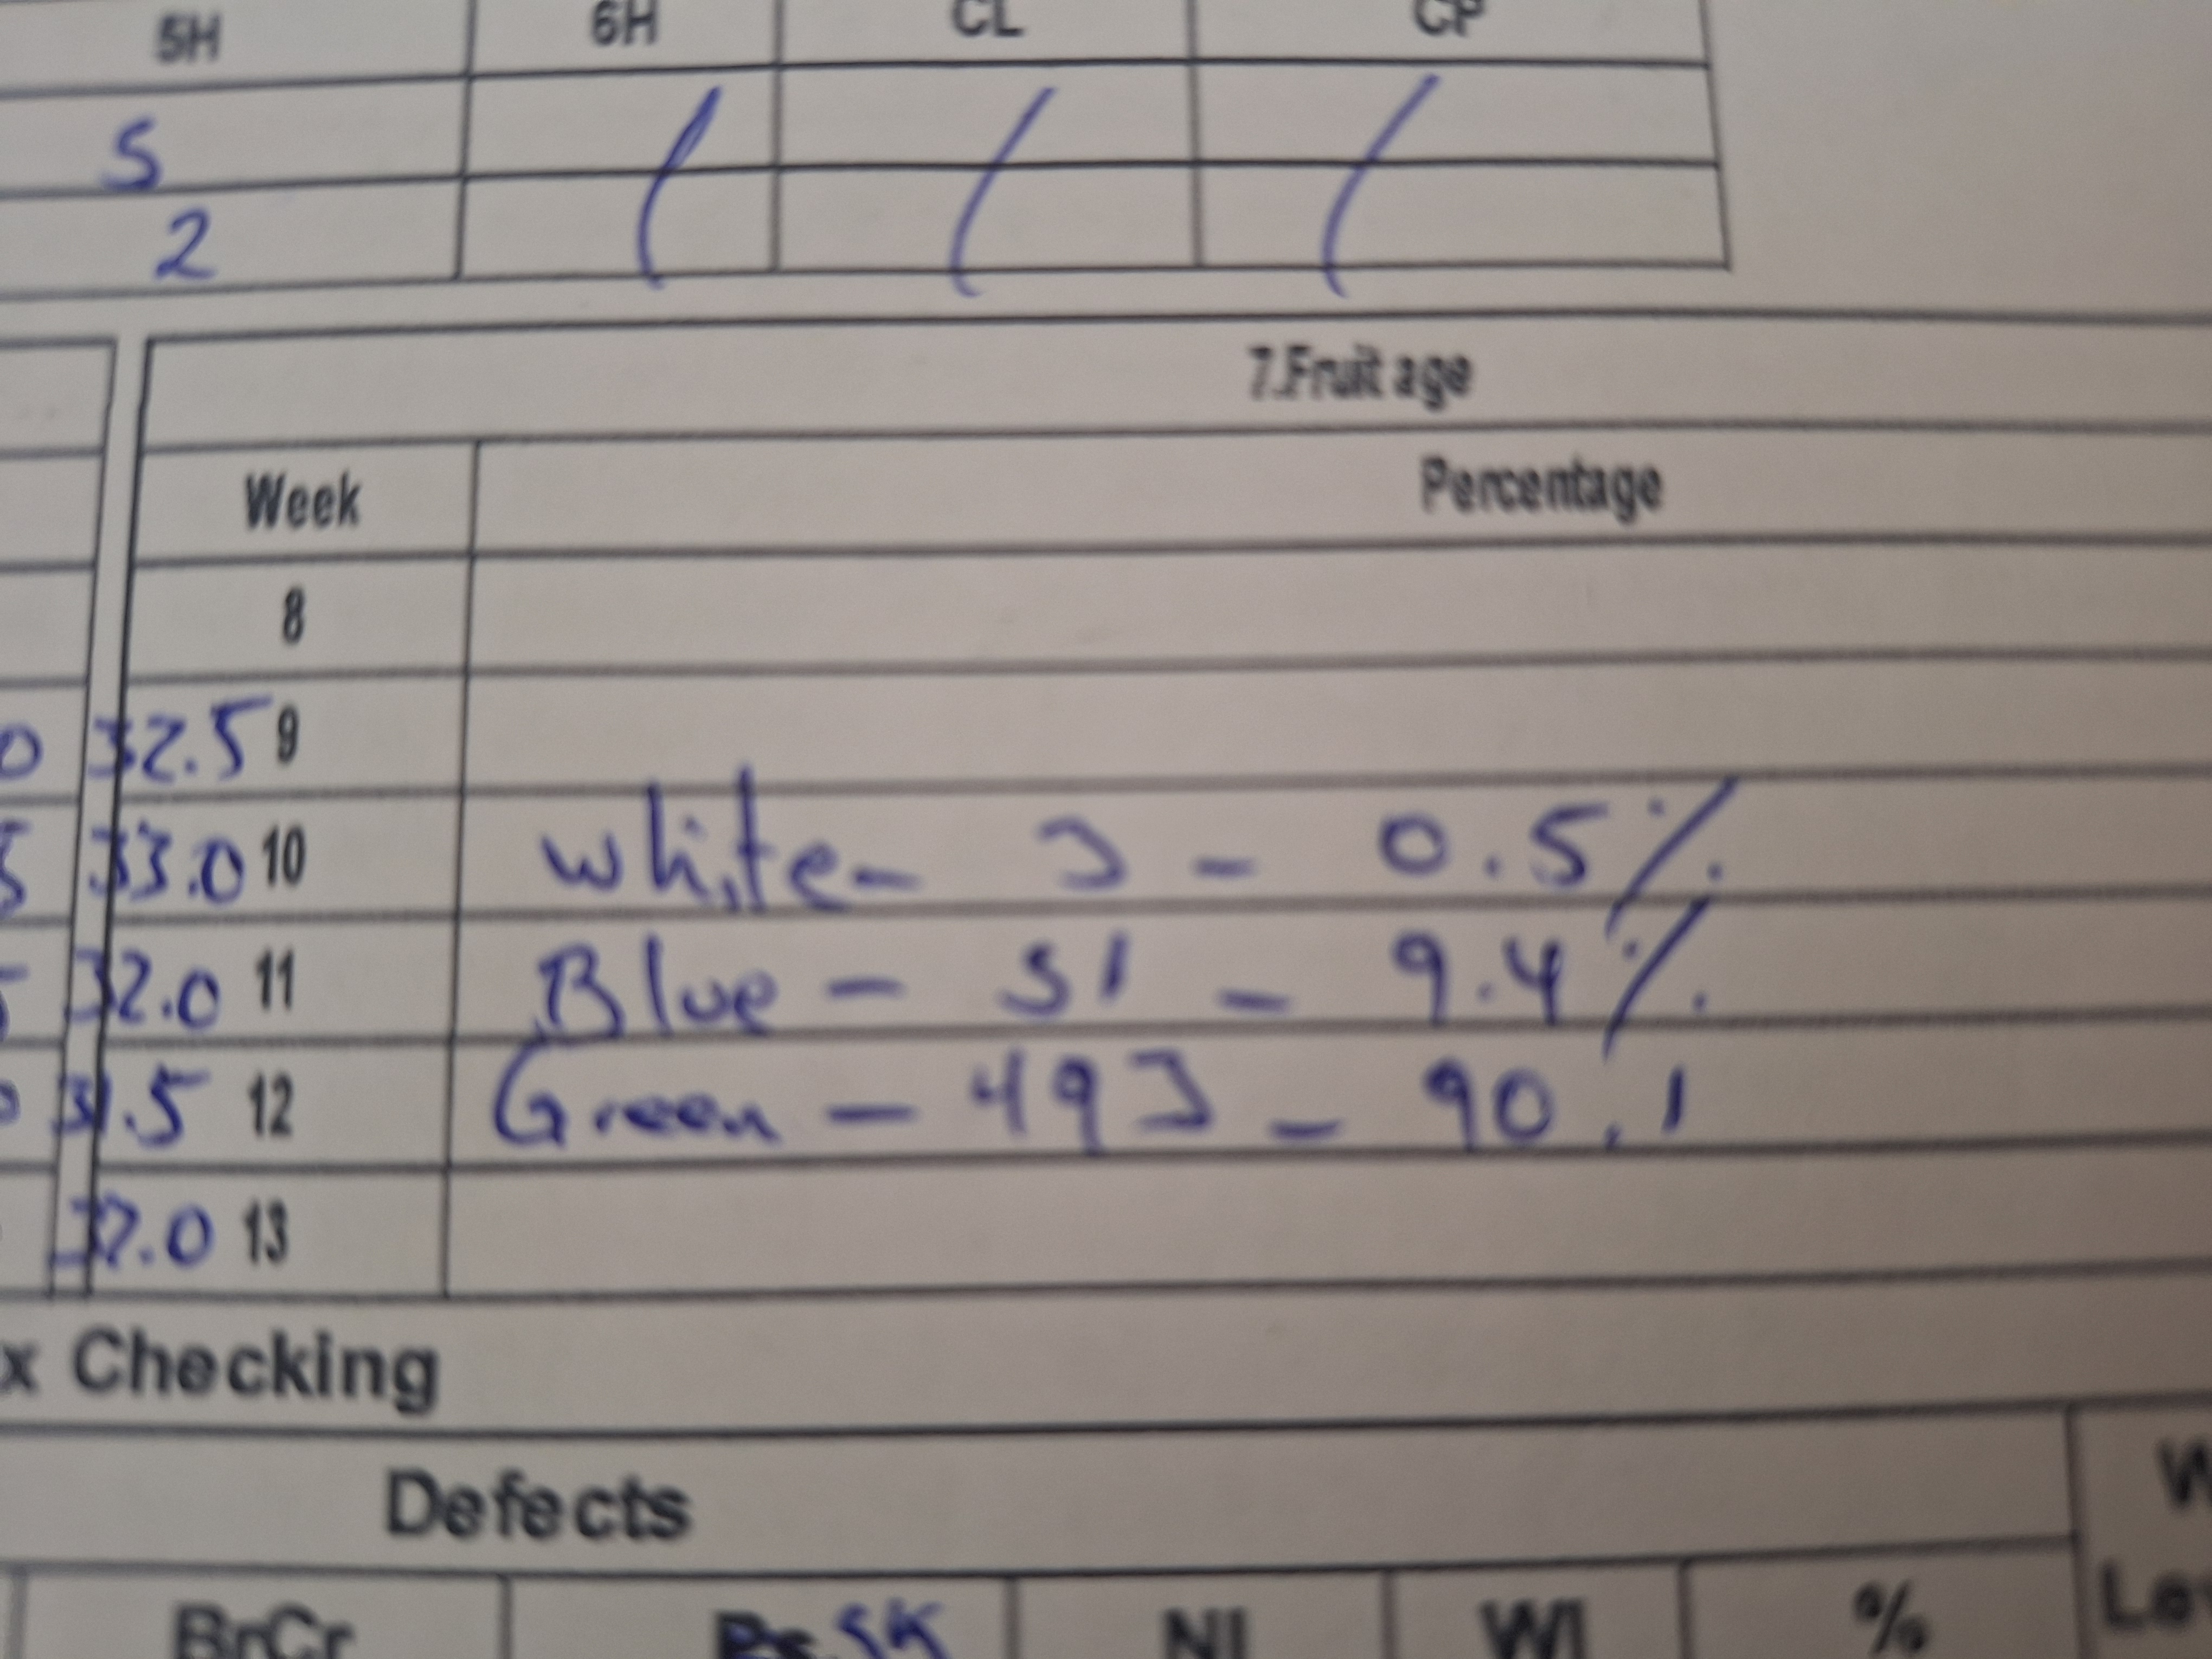 5H 6H CL CP
5 / / /
2
7.Fruit age
Week Percentage
8
32.5 9
33.0 10 White - 3 - 0.5%
32.0 11 Blue - 51 - 9.4%
31.5 12 Green - 493 - 90.1
13
Checking
Defects
BrCr NI WI %